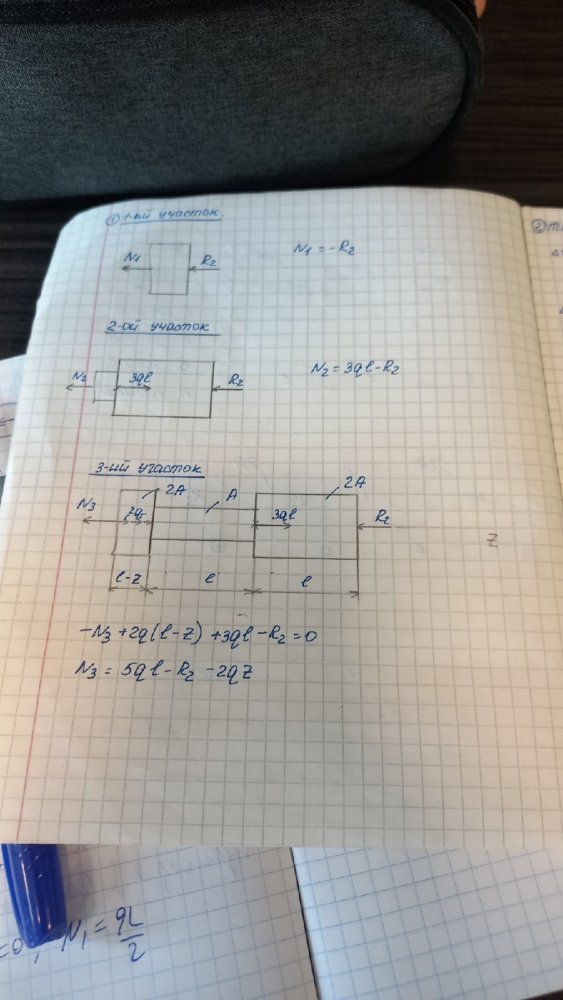 ① 1-ый участок
N1 R2 N1 = -R2
2-ой участок
N2 3ql R2 N2 = 3ql - R2
3-ий участок
2A A 2A
N3 2q 3ql R2 z
l-z l l
-N3 + 2q(l-z) + 3ql - R2 = 0
N3 = 5ql - R2 - 2qz
②
=0, N1 = qL/2